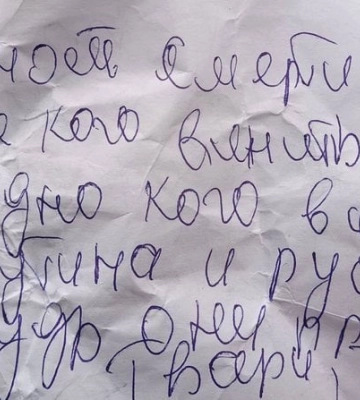 моей смерти
кого винить
дно кого в
тина и рус
они
Твари